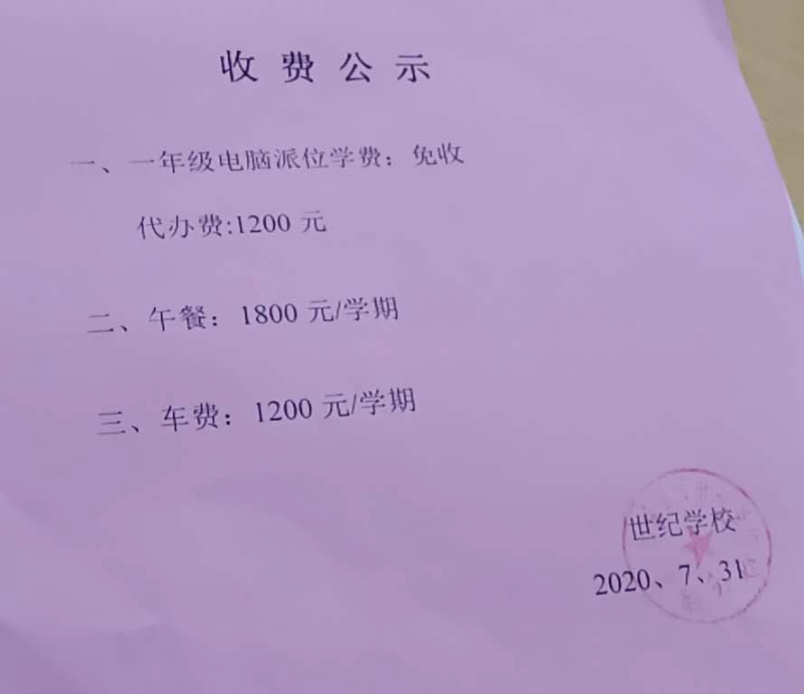 收费公示
一、一年级电脑派位学费：免收
代办费:1200 元
二、午餐：1800 元/学期
三、车费：1200 元/学期
世纪学校
2020、7、31